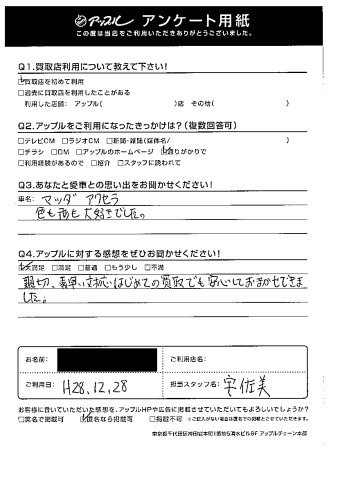 アップル アンケート用紙
この度は当店をご利用いただきありがとうございました。
Q1.買取店利用について教えて下さい!
☑買取店を初めて利用
□過去に買取店を利用したことがある
利用した店舗: アップル( )店 その他( )
Q2.アップルをご利用になったきっかけは?(複数回答可)
□テレビCM □ラジオCM □新聞・雑誌(媒体名 )
□チラシ □DM □アップルのホームページ ☑通りがかりで
□利用経験があるので □紹介 □スタッフに誘われて
Q3.あなたと愛車との思い出をお聞かせください!
車名: マツダ アクセラ
色も形も大好きでした。
Q4.アップルに対する感想をぜひお聞かせください!
☑大満足 □満足 □普通 □もう少し □不満
親切、素早い対応 はじめての買取でも安心しておまかせできま
した。
お名前:
ご利用店名:
ご利用日: H28.12.28
担当スタッフ名: 宇佐美
お客様に書いていただいた感想を、アップルHPや広告に掲載させていただいてもよろしいでしょうか?
□実名で掲載可 ☑匿名なら掲載可 □掲載不可 ※ご記入がない場合は匿名での掲載とさせていただきます。
東京都千代田区神田佐久間町1番地5清水ビル9F アップルチェーン本部